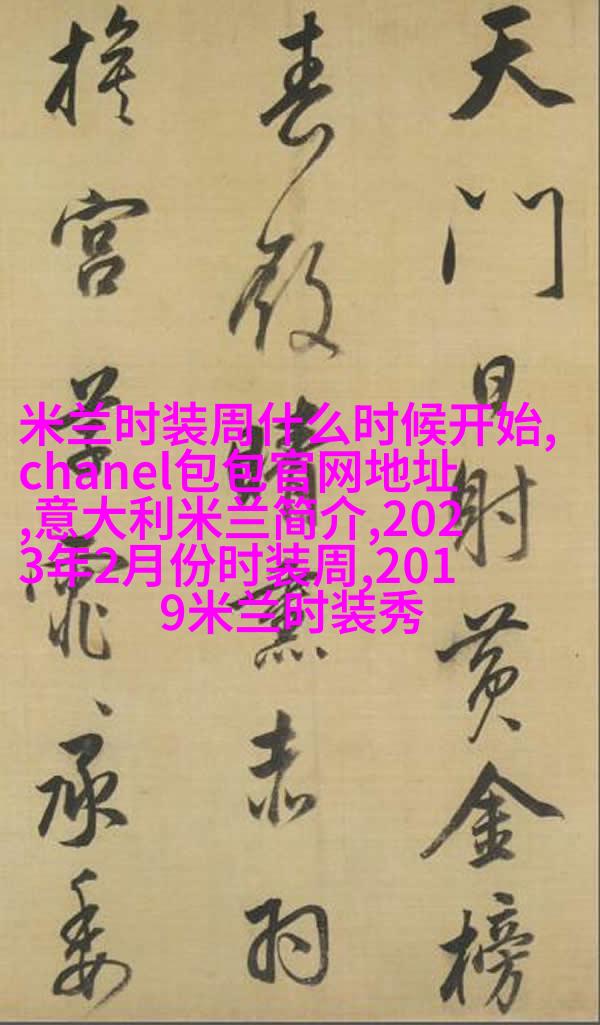 天門日射黃金榜
春殿晴熏赤羽
旗宮草霏〻承委
米兰时装周什么时候开始,
chanel包包官网地址
,意大利米兰简介,202
3年2月份时装周,201
9米兰时装秀